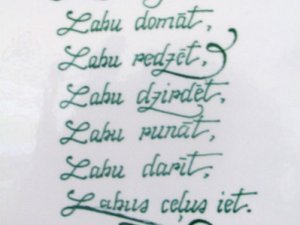 Labu domāt,
Labu redzēt,
Labu dzirdēt,
Labu runāt,
Labu darīt,
Labus ceļus iet.